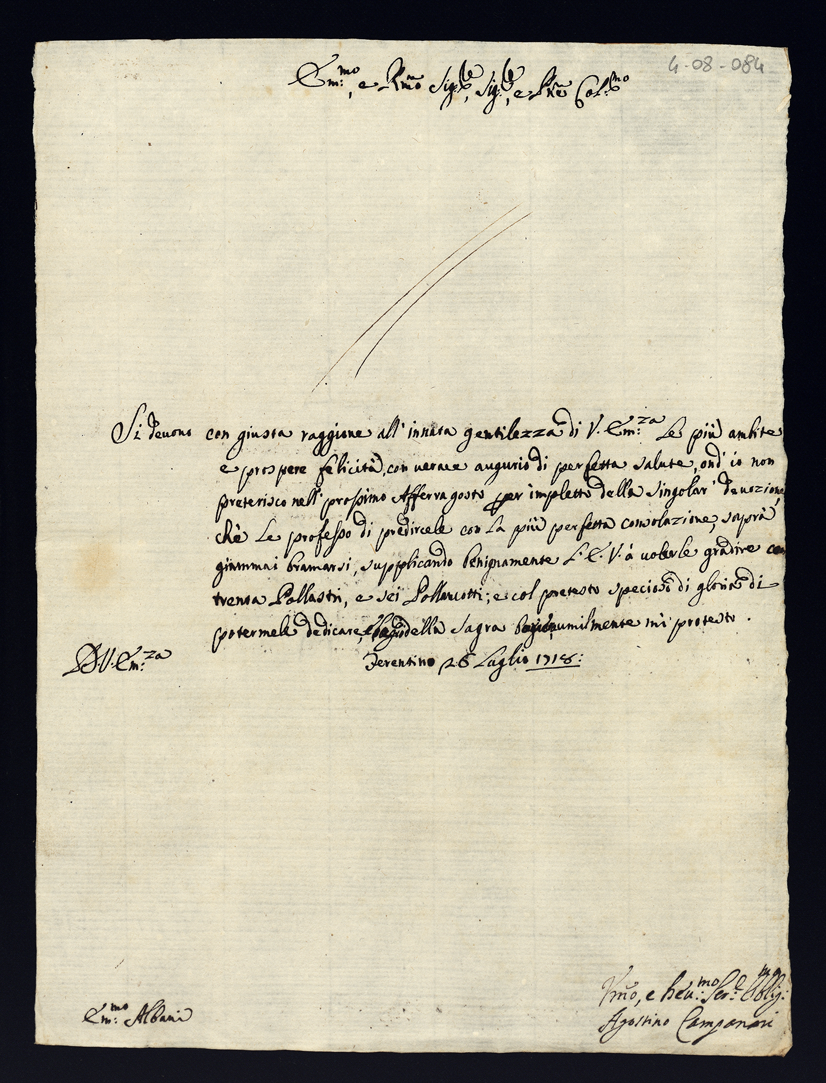 4-08-084
Em:mo, e Rmo Sig:re, Sig:re, e Prne Col:mo
Si devono con giusta raggione all' innata gentilezza di V. Em:za Le più ambite
e prospere felicità, con verace augurio di perfetta salute, ond' io non
preterisco nell' prossimo Afferragosto per impletto della singolar' devozione,
chè Le professo di predircele con La più perfetta consolazione, saprà
giammai bramarsi, supplicando benignamente L' E. V. à volerle gradire con
trenta Pollastri, e sei Pollancotti; e col pretesto specioso di glorio di
potermele dedicare, della sagra umilmente mi protesto.
D V. Em:za
Ferentino 28 Luglio 1718:
Vmo, e Deu:mo Ser:e Oblig:mo
Agostino Campanari
Em:mo Albani